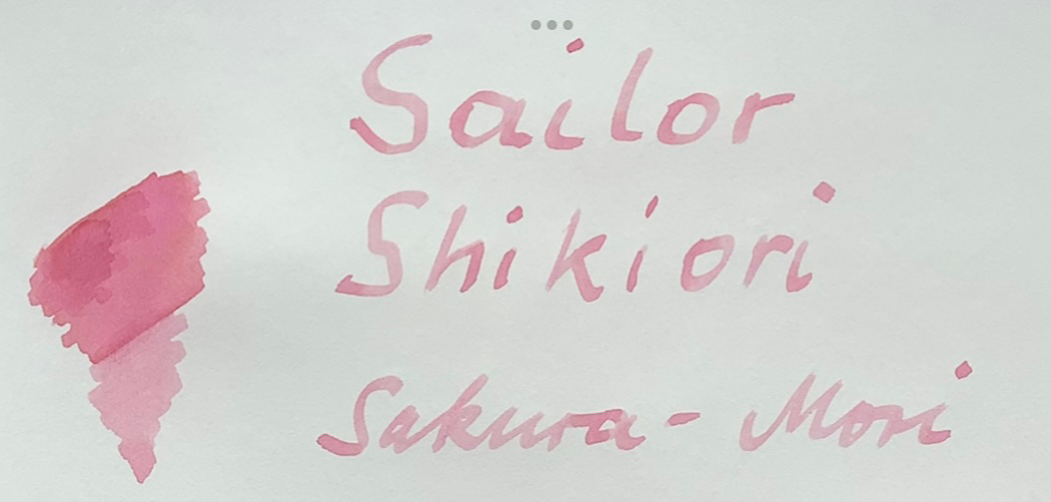 Sailor
Shikiori
Sakura-Mori